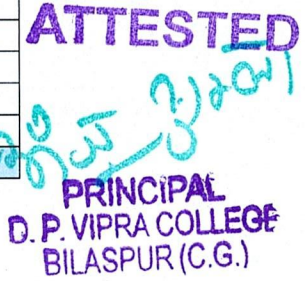 ATTESTED
PRINCIPAL
D. P. VIPRA COLLEGE
BILASPUR (C.G.)